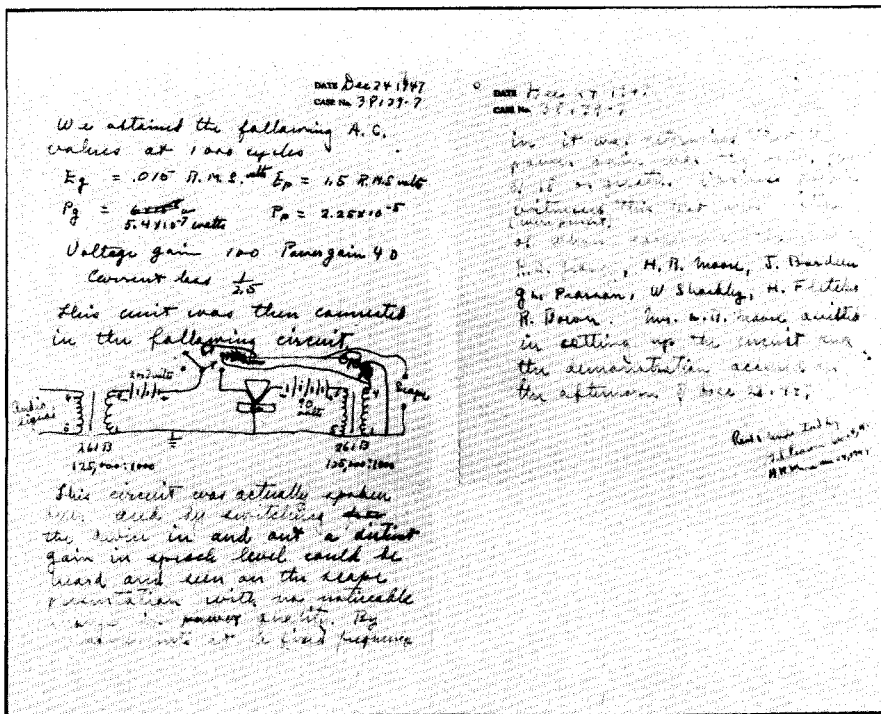 DATE Dec 24 1947
CASE No. 38139-7
We obtained the following A.C.
values at 1000 cycles
Eg = .015 R.M.S. volts Ep = 1.5 R.M.S volts
Pg = 5.4×10⁻⁷ watts Pp = 2.25×10⁻⁵
Voltage gain 100 Power gain 40
Current loss 1/2.5
This unit was then connected
in the following circuit
Audio signal
volts
90 volts
Scope
261B
125,000:1000
261B
125,000:1000
This circuit was actually spoken
over and by switching
the device in and out a distinct
gain in speech level could be
heard and seen on the scope
presentation with no noticeable
change in quality. By
measurements at a fixed frequency
DATE Dec 24 1947
CASE No. 38139-7
in it was determined that the
power gain was
of 18 or greater. Various people
witnessed this test and
of whom
H. R. Moore, J. Bardeen
G. L. Pearson, W Shockley, H. Fletcher
R. Bown. Mr. H. R. Moore assisted
in setting up the circuit and
the demonstration occurred on
the afternoon of Dec 23
Read & understood by